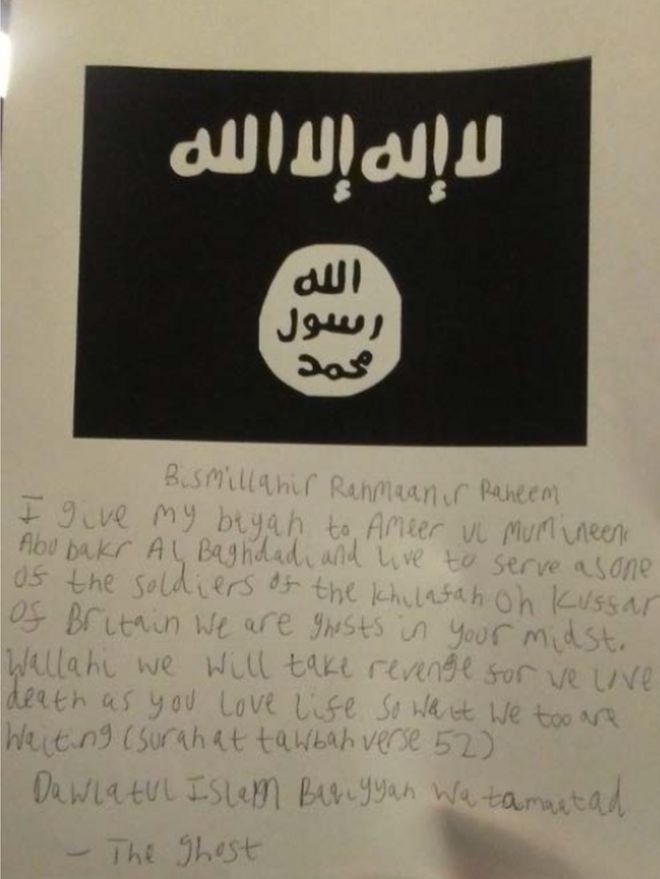 لا إله إلا الله
الله
رسول
محمد
Bismillahir Rahmaanir Raheem
I give my bayah to Ameer ul mumineen
Abu bakr Al Baghdadi and live to serve as one
of the soldiers of the khilafah Oh Kuffar
of Britain we are ghosts in your midst.
Wallahi we will take revenge for we love
death as you love life so wait we too are
waiting (surah at tawbah verse 52)
Dawlatul Islam Baqiyyah wa tamaatad
- The Ghost